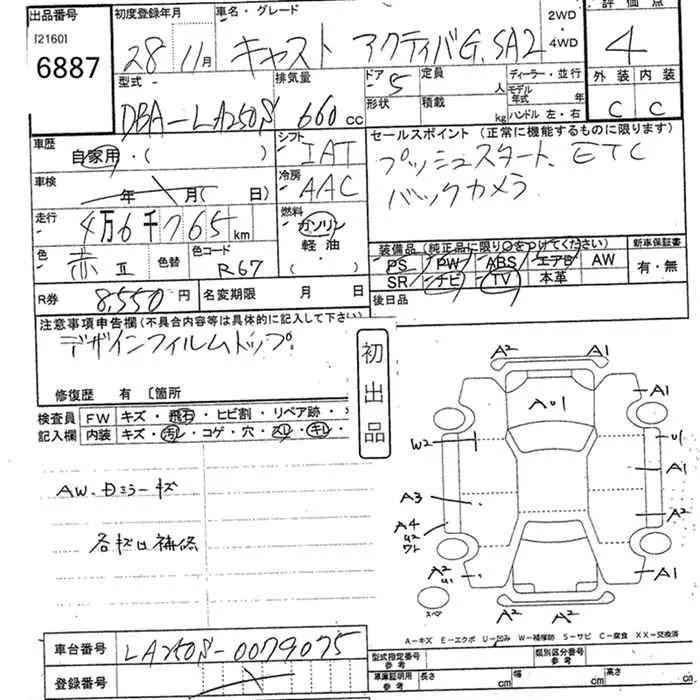 出品番号
[2160]
6887
初度登録年月
28 11月
車名・グレード
キャスト アクティバG.SA2
2WD
・
4WD
評価点
4
外装 内装
C C
型式
DBA-LA250S
排気量
660cc
ドア 5
形状
定員 人
積載 kg
ディーラー・並行
モデル年式 年
ハンドル 左・右
車歴
自家用・( )
シフト
IAT
セールスポイント (正常に機能するものに限ります)
プッシュスタート、ETC
バックカメラ
車検
年 月( 日)
冷房
AAC
走行
4万6千765km
燃料
ガソリン
軽油
・( )
色
赤II
色替
色コード
R67
装備品(純正品に限り○をつけてください)
PS PW ABS エアB AW
SR ナビ TV 本革
新車保証書
有・無
R券 8,550円
名変期限 月 日
後日品
注意事項申告欄(不具合内容等は具体的に記入して下さい)
デザインフィルムトップ
修復歴 有 〔箇所
初出品
検査員記入欄
FW キズ・飛石・ヒビ割・リペア跡・
内装 キズ・汚レ・コゲ・穴・スレ・キレ・
AW.Dミラーキズ
各キズ凹補修
A2 A1
AU1
A1
W2
U1
A1
A3
A2
A4
U2
ワレ
A2
U1
A1
スペ
A2 A2
A-キズ E-エクボ U-凹み W-補修跡 S-サビ C-腐食 XX-交換済
車台番号 LA250S-0079075
登録番号
型式指定番号
参考
類別区分番号
参考
車庫証明用
参考
長さ cm
幅 cm
高さ cm